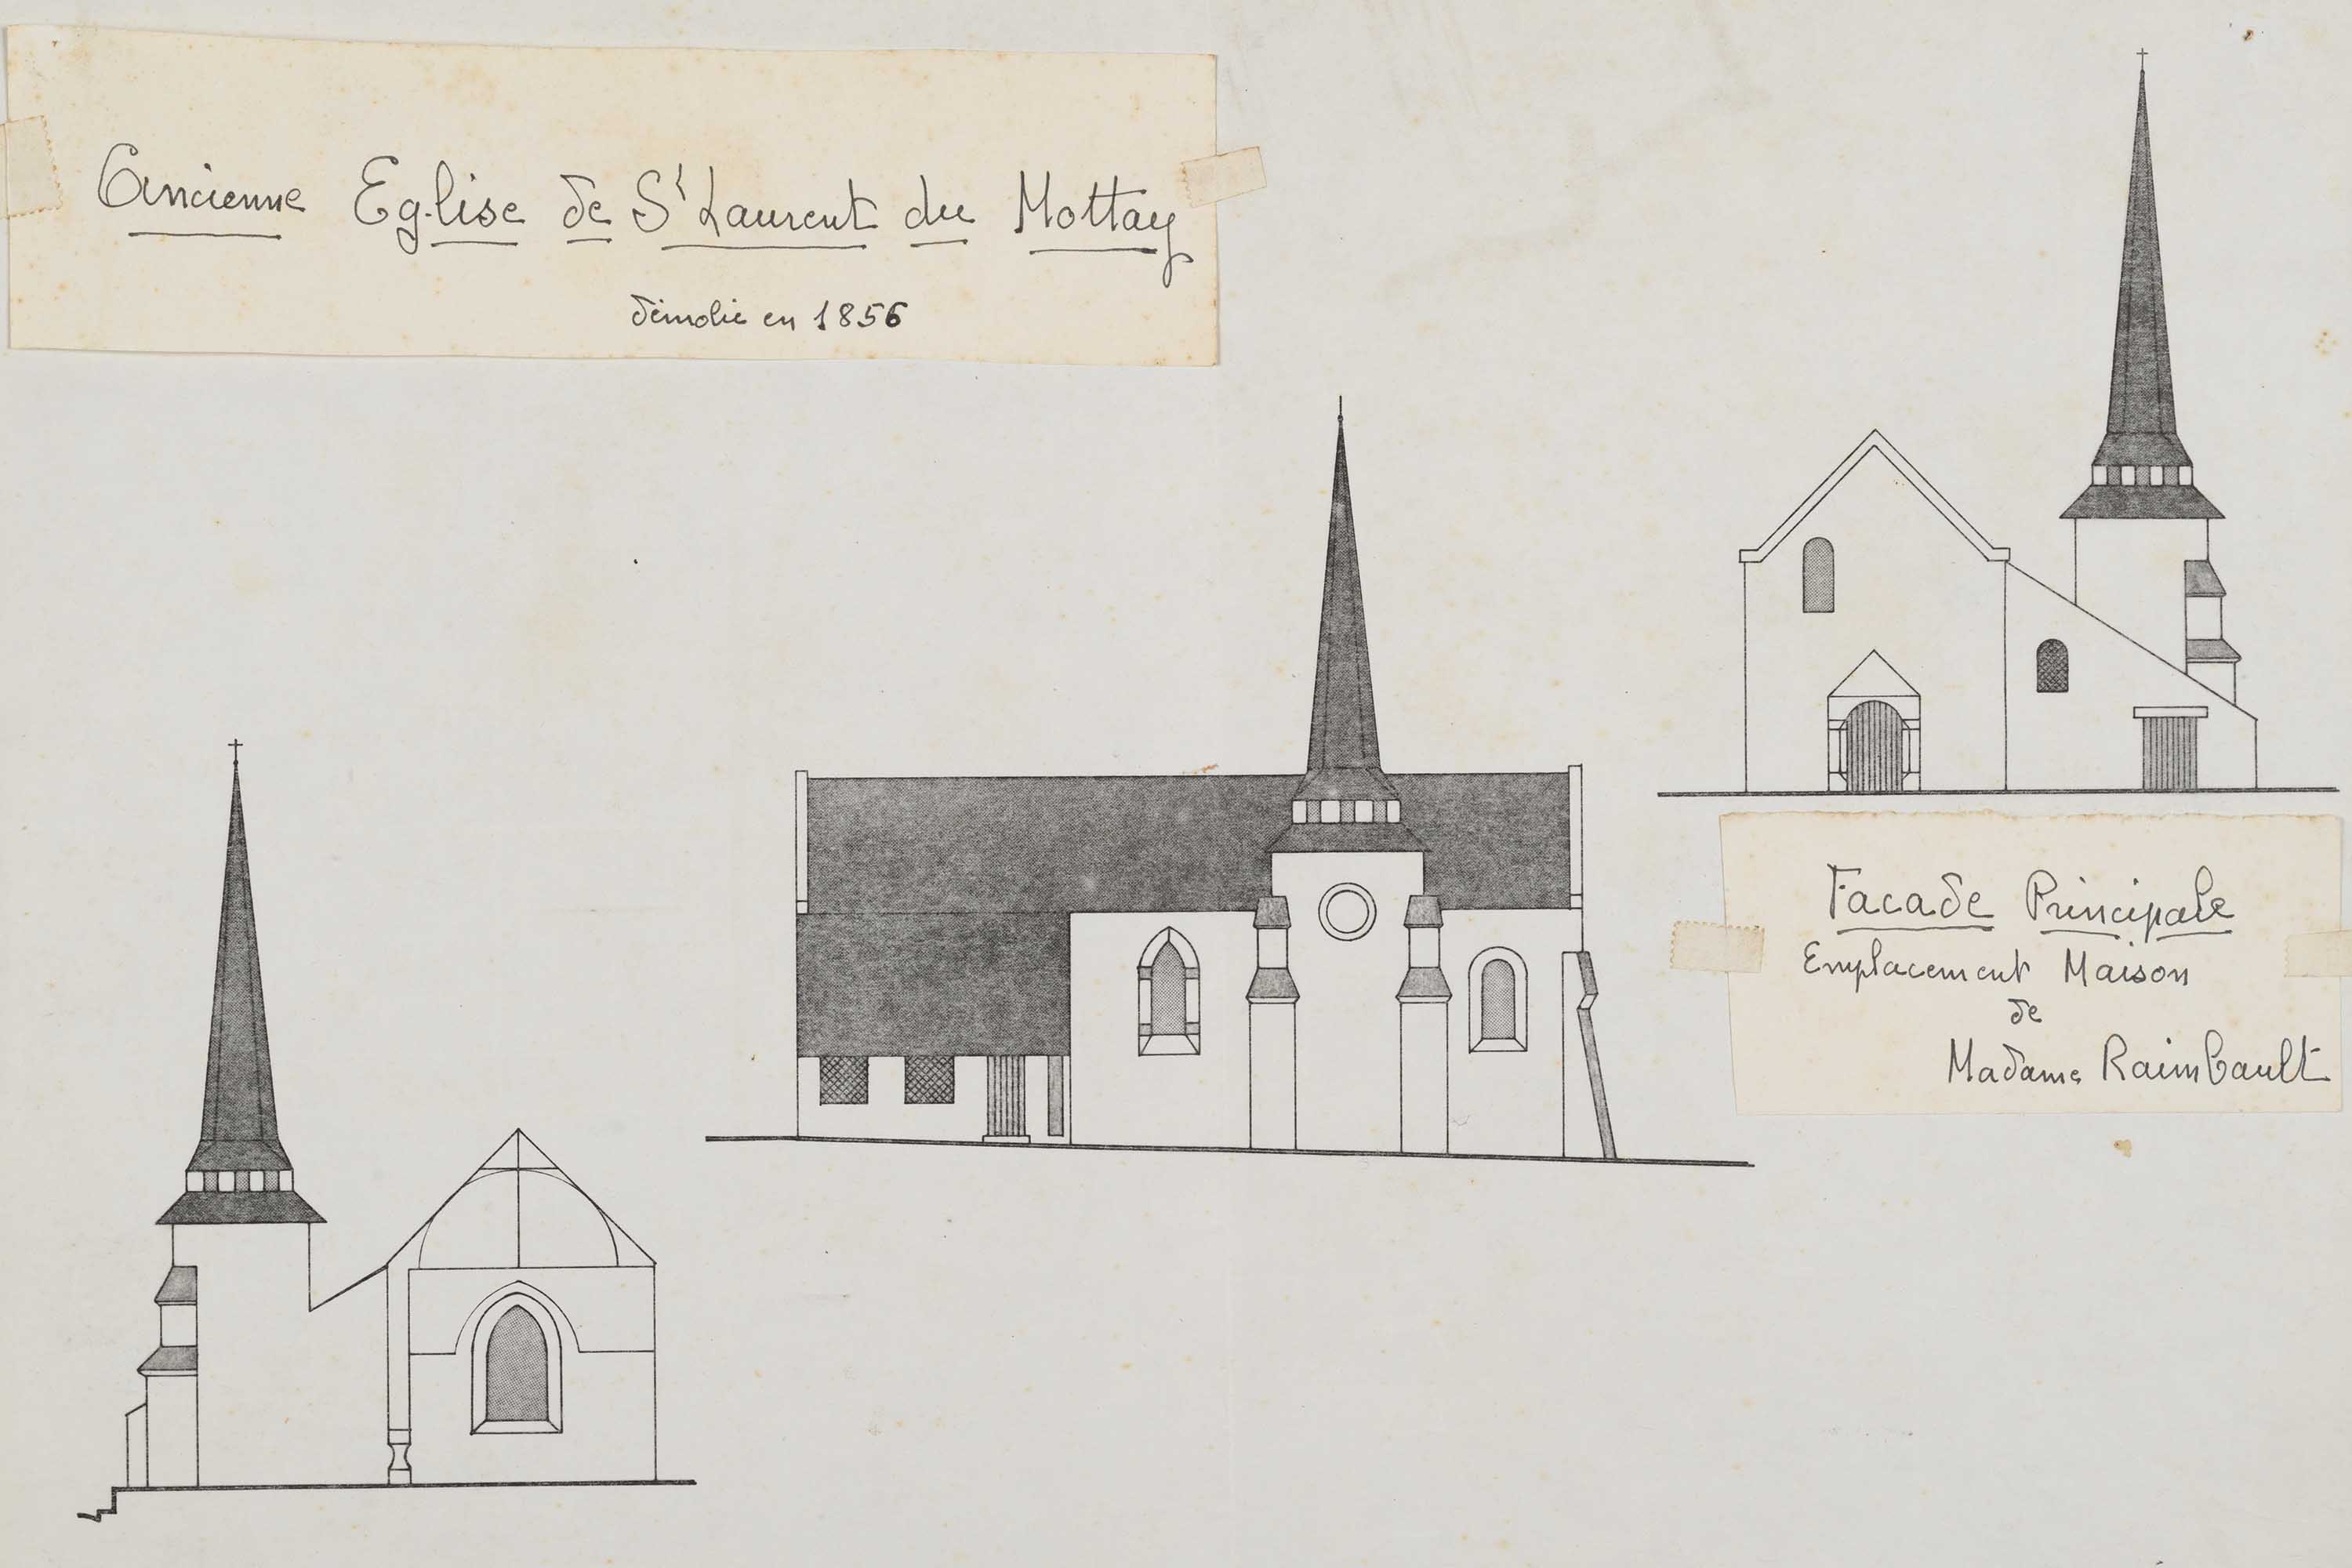 Ancienne Eglise de St Laurent du Mottay
démolie en 1856
Facade Principale
Emplacement Maison
de
Madame Raimbault